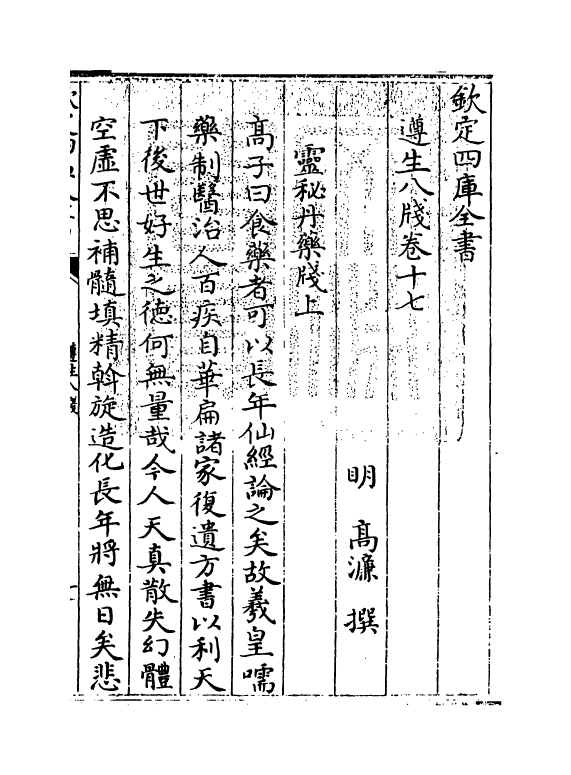 欽定四庫全書
遵生八牋卷十七
明　髙濂　撰
靈秘丹藥牋上
髙子曰食藥者可以長年仙經論之矣故羲皇嚅
藥制醫治人百疾自華扁諸家復遺方書以利天
下後世好生之徳何無量哉今人天真散失幻體
空虛不思補髓填精斡旋造化長年將無日矣悲